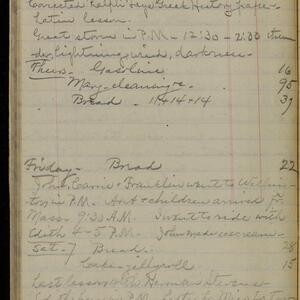 Corrected Ralph Hay's Greek History paper
Latin lesson.
Great storm in P.M. - 12:30 - 2:30 thun
der, lightning, wind, darkness.
Thurs. Gasoline 16
Mary - cleaning 95
Bread 11+14+14 39
Friday - Bread 22
John, Carrie & Franklin went to
in P.M. & children arrived fr
Mass. 9:30 A.M. I went to ride with
Edith 4-5 P.M. John made ice cream.
Sat. 7 Bread 28
Cake - jelly roll 15
Last lesson to Herman